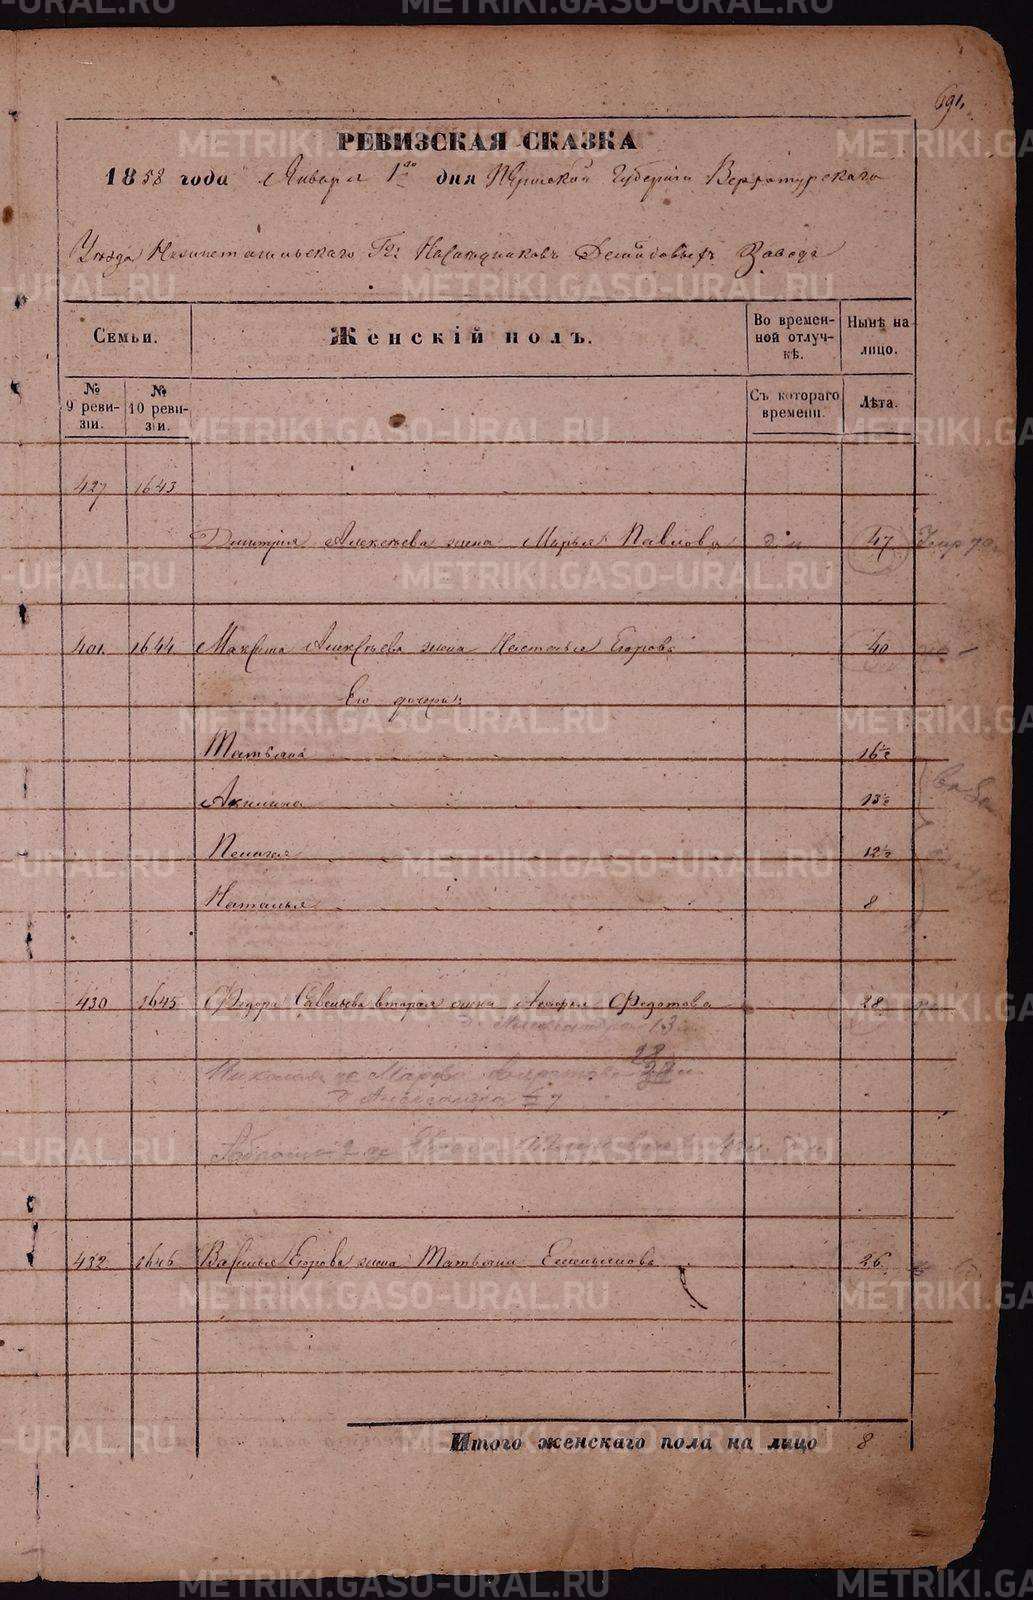 691.
РЕВИЗСКАЯ СКАЗКА
1858 года Января 1го дня Пермской Губернiи Верхотурскаго
Уезда Нижнетагильскаго Гг: Наследниковъ Демидовыхъ Завода
Семьи.
Женскiй полъ.
Во времен-
ной отлуч-
кѣ.
Нынѣ на
лицо.
№
9 реви-
зiи.
№
10 реви-
зiи.
Съ котораго
времени.
Лѣта.
427 1643
Дмитрiя Алексеева жена Марья Павлова 47
401. 1644 Максима Алексѣева жена Настасья Егорова 40
Его дочери:
Татьяна 16½
Акилина 13½
Пелагея 12½
Наталья 8
430 1645 Федора Савельева вторая жена Агафья Федотова 28
Александра 13
28
Николая Марфа
Александра
432 1646 Василья Егорова жена Татьяна Емельянова 26
Итого женскаго пола на лицо 8
METRIKI.GASO-URAL.RU